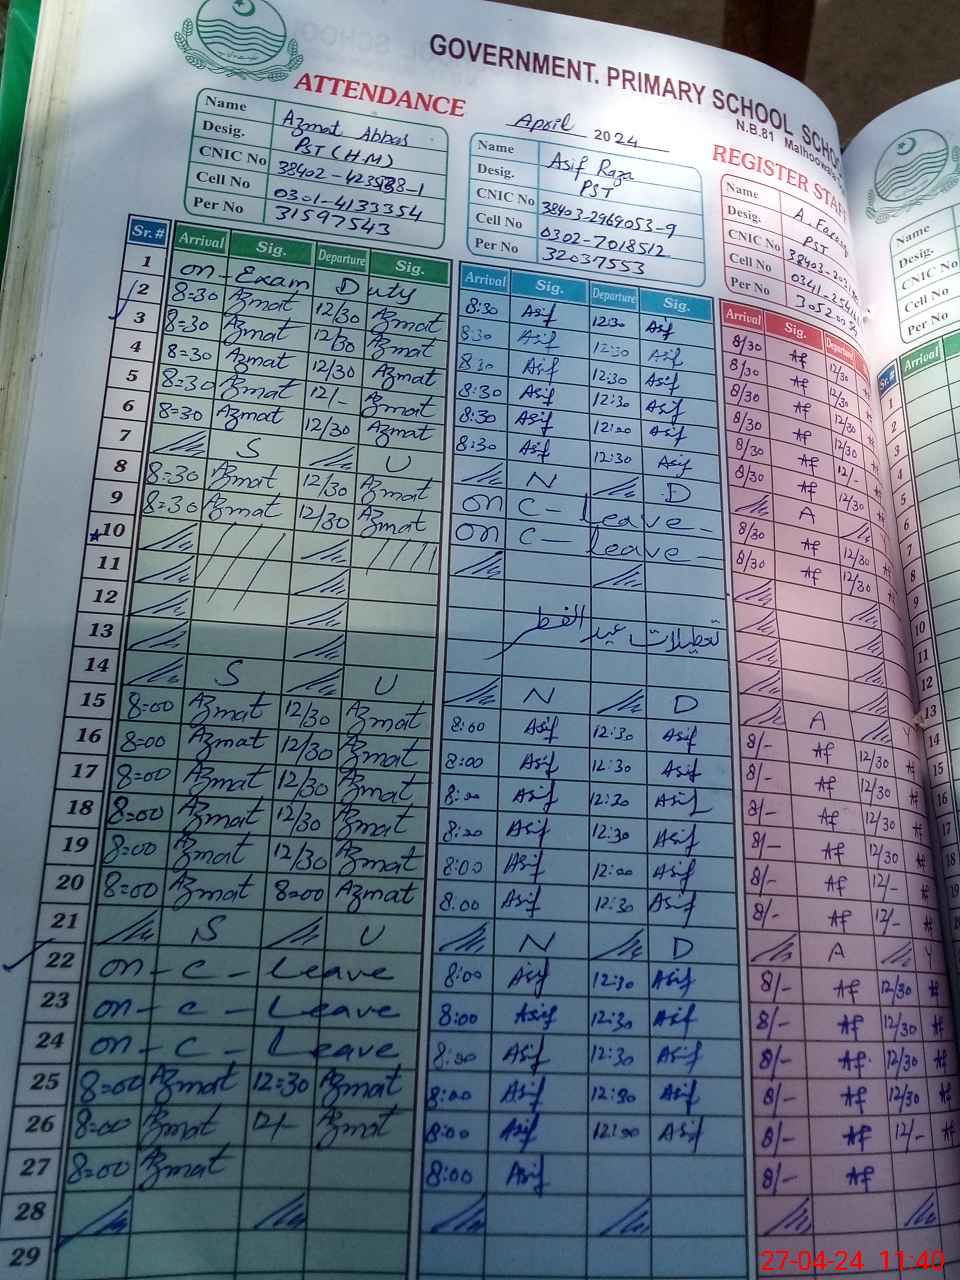 GOVERNMENT. PRIMARY SCHOOL
N.B.81
ATTENDANCE
April 2024
REGISTER STAFF
Name Azmat Abbas
Desig. PST (H.M)
CNIC No
Cell No 0301-4133354
Per No 31597543
Name Asif Raza
Desig. PST
CNIC No 38403-2969053-9
Cell No 0302-7018512
Per No 32037553
Name
Desig. PST
CNIC No
Cell No
Per No
Name
Desig.
CNIC No
Cell No
Per No
Sr.# Arrival Sig. Departure Sig. Arrival Sig. Departure Sig. Arrival Sig. Departure
Sr.# Arrival
1 on - Exam Duty 8:30 Asif 12:30 Asif 8/30 Af 12/30
2 8=30 Azmat 12/30 Azmat 8:30 Asif 12:30 Asif 8/30 Af 12/30
3 8=30 Azmat 12/30 Azmat 8:30 Asif 12:30 Asif 8/30 Af 12/30
4 8=30 Azmat 12/30 Azmat 8:30 Asif 12:30 Asif 8/30 Af 12/30
5 8=30 Azmat 12/- Azmat 8:30 Asif Asif 8/30 Af 12/-
6 8=30 Azmat 12/30 Azmat 8:30 Asif 12:30 Asif 8/30 Af 12/30
7 S U N D A
8 8=30 Azmat 12/30 Azmat on C - leave - 8/30 Af 12/30
9 8=30 Azmat 12/30 Azmat on C - leave - 8/30 Af 12/30
10
11
12 تعطیلات عید الفطر
13
14 S U N D A Y
15 8=00 Azmat 12/30 Azmat 8:00 Asif 12:30 Asif 8/- Af 12/30
16 8=00 Azmat 12/30 Azmat 8:00 Asif 12:30 Asif 8/- Af 12/30
17 8=00 Azmat 12/30 Azmat 8:00 Asif 12:30 Asif 8/- Af 12/30
18 8=00 Azmat 12/30 Azmat 8:00 Asif 12:30 Asif 8/- Af 12/30
19 8=00 Azmat 12/30 Azmat 8:00 Asif 12:00 Asif 8/- Af 12/-
20 8=00 Azmat 8=00 Azmat 8:00 Asif 12:30 Asif 8/- Af 12/-
21 S U N D A Y
22 on - C - Leave 8:00 Asif 12:30 Asif 8/- Af 12/30
23 on - C - Leave 8:00 Asif 12:30 Asif 8/- Af 12/30
24 on - C - Leave 8:00 Asif 12:30 Asif 8/- Af 12/30
25 8=00 Azmat 12=30 Azmat 8:00 Asif 12:30 Asif 8/- Af 12/30
26 8=00 Azmat 12/- Azmat 8:00 Asif 12:00 Asif 8/- Af 12/-
27 8=00 Azmat 8:00 Asif 8/- Af
28
29
27-04-24 11:40